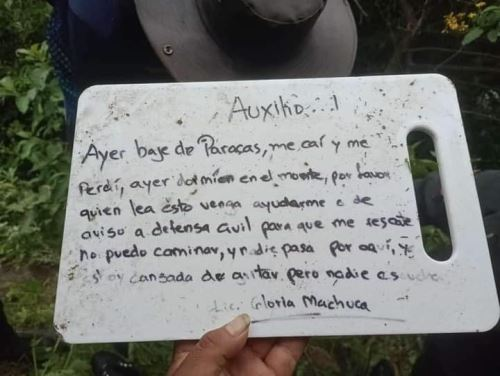 Auxilio...!
Ayer baje de Paracas, me caí y me
Perdí, ayer dormi en el monte, por favor
quien lea esto venga ayudarme o de
aviso a defensa civil para que me rescate
no puedo caminar, y nadie pasa por aquí, y
estoy cansada de gritar pero nadie escucha
Lic. Gloria Machuca